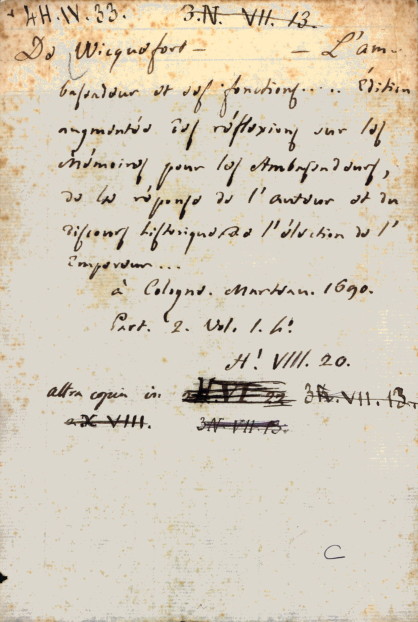 4H. IV. 33. 3. N. VII. 13.
De Wicquefort – – L'am-
bassadeur et ses fonctions..... Édition
augmentée des réflexions sur les
Mémoires pour les Ambassadeurs,
de la réponse de l'auteur et du
discours historique de l'élection de l'
Empereur...
à Cologne. Marteau. 1690.
Part. 2. Vol. 1. 4º
Hⁱ. VIII. 20.
altra copia in 3N. VII. 13.
2 X VIII. 3N VII 13.
C